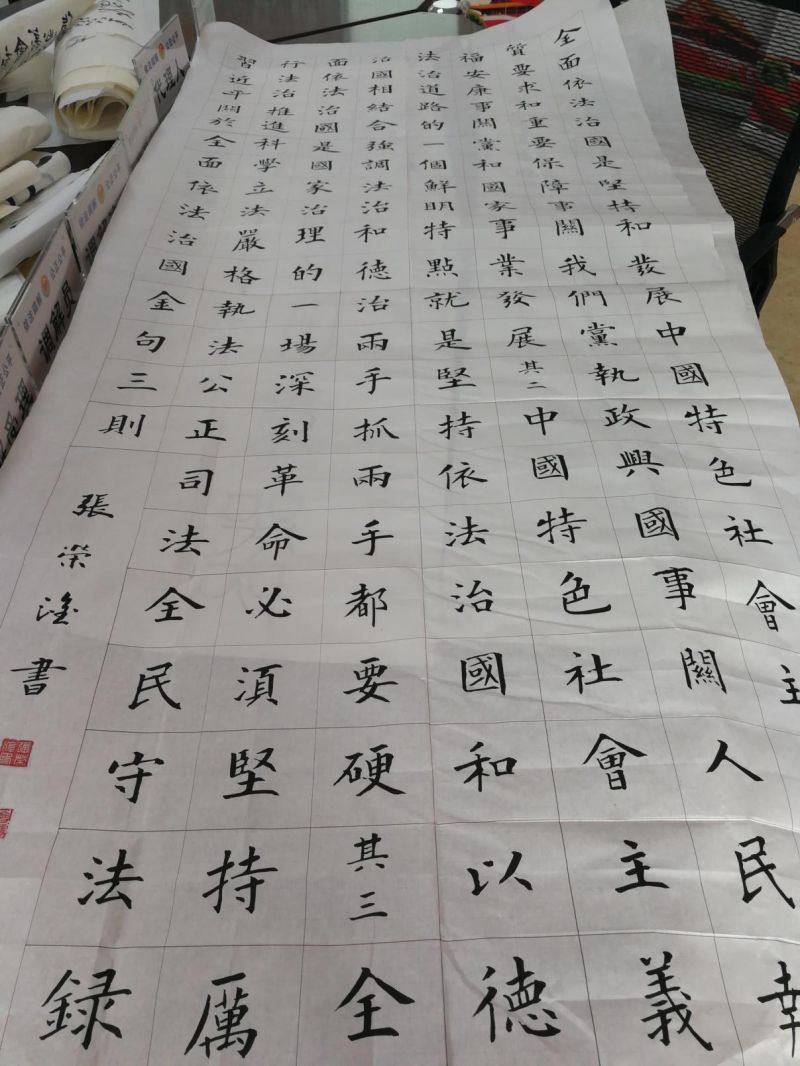 全面依法治國是堅持和發展中國特色社會主
質要求和重要保障事關我們黨執政興國事關人民幸
福安康事關黨和國家事業發展其二中國特色社會主義
法治道路的一個鮮明特點就是堅持依法治國和以德
治國相結合強調法治和德治兩手抓兩手都要硬其三全
面依法治國是國家治理的一場深刻革命必湏堅持厲
行法治推進科學立法嚴格執法公正司法全民守法錄
習近平關於全面依法治國金句三則
張榮書
代理人
调解员